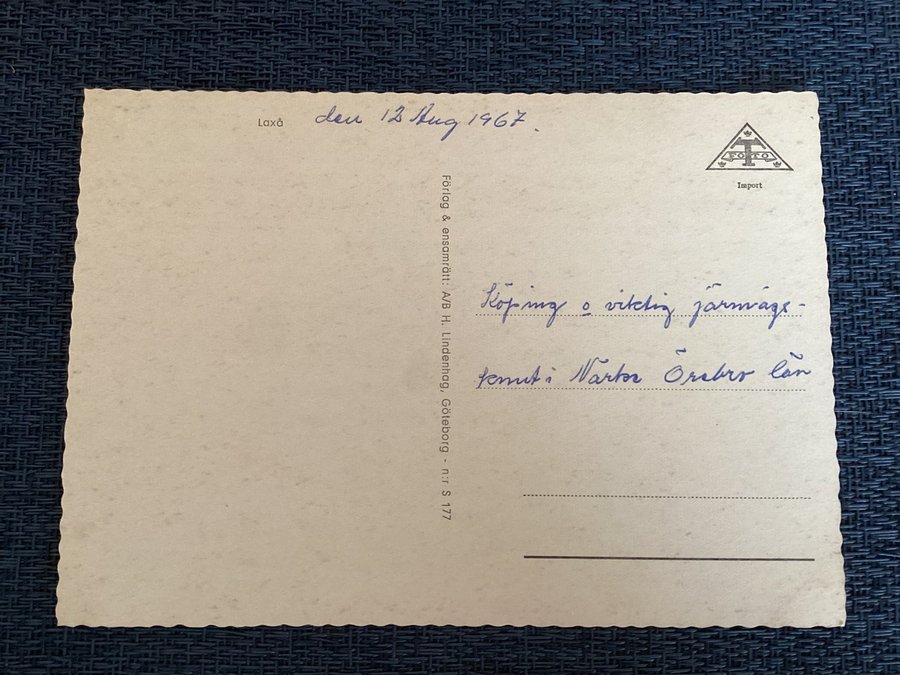 Laxå den 12 Aug 1967.
T
FOTO
Import
Förlag & ensamrätt: A/B H. Lindenhag, Göteborg - n:r S 177
Köping o viktig järnvägs-
knut i Närke Örebro län